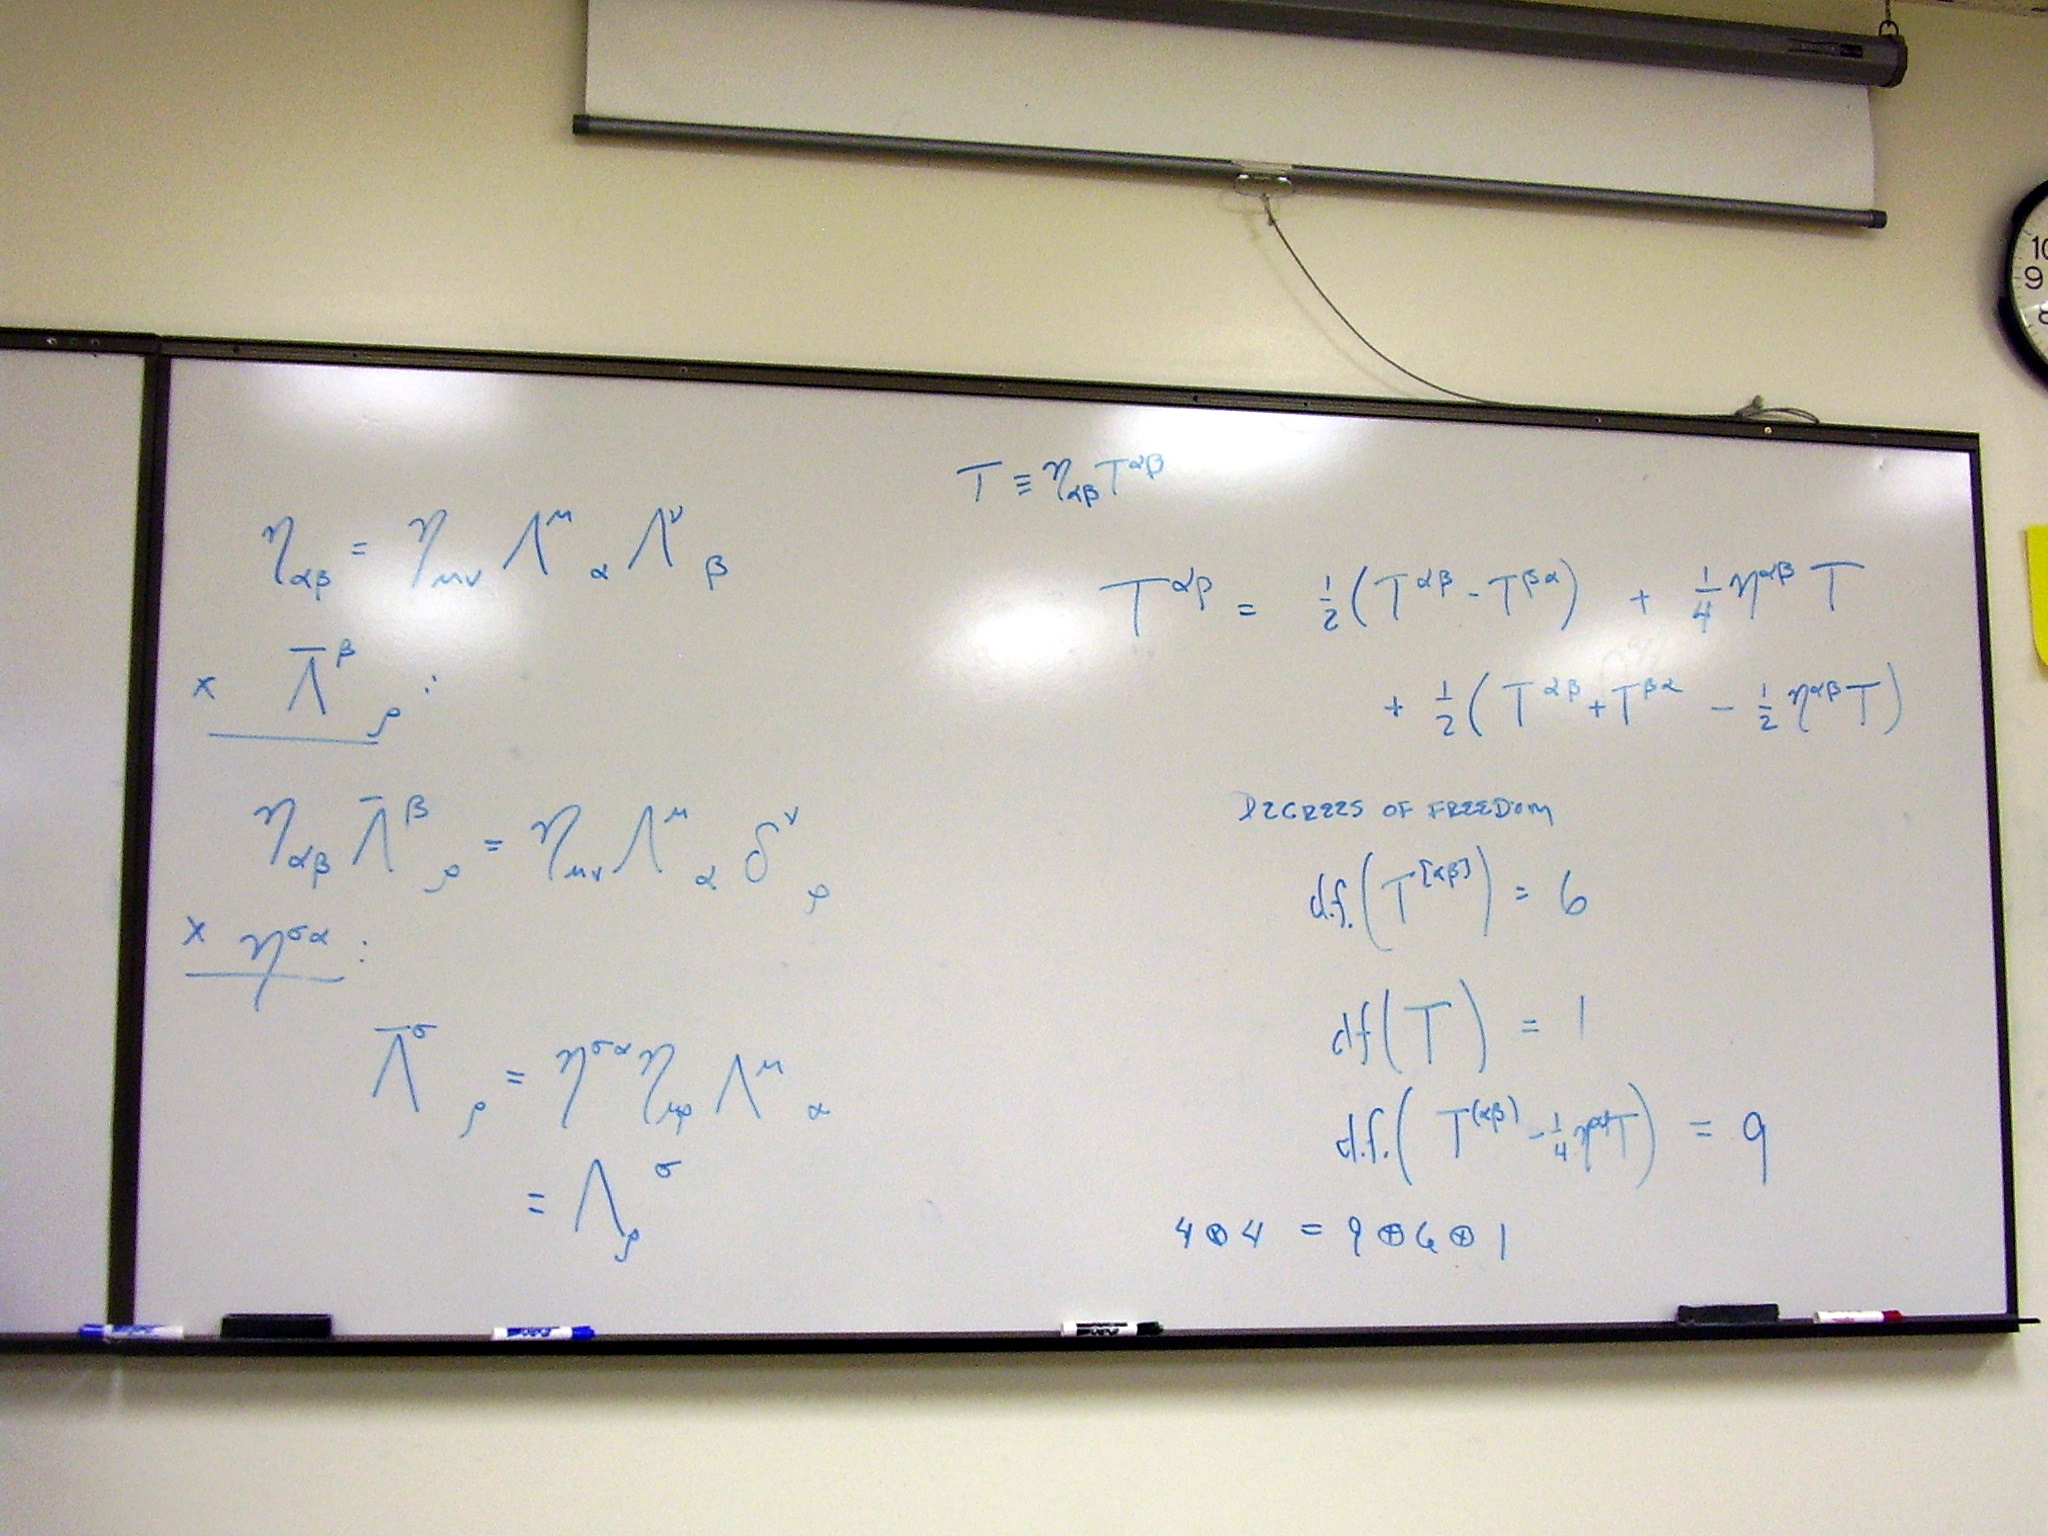 η_{αβ} = η_{μν} Λ^μ_α Λ^ν_β
× Λ̄^β_ρ :
η_{αβ} Λ̄^β_ρ = η_{μν} Λ^μ_α δ^ν_ρ
× η^{σα} :
Λ̄^σ_ρ = η^{σα} η_{μρ} Λ^μ_α
= Λ_ρ^σ
T ≡ η_{αβ} T^{αβ}
T^{αβ} = 1/2 (T^{αβ} - T^{βα}) + 1/4 η^{αβ} T
+ 1/2 (T^{αβ} + T^{βα} - 1/2 η^{αβ} T)
DEGREES OF FREEDOM
d.f. (T^{[αβ]}) = 6
df (T) = 1
d.f. (T^{(αβ)} - 1/4 η^{αβ} T) = 9
4 ⊗ 4 = 9 ⊕ 6 ⊕ 1
10
9
8